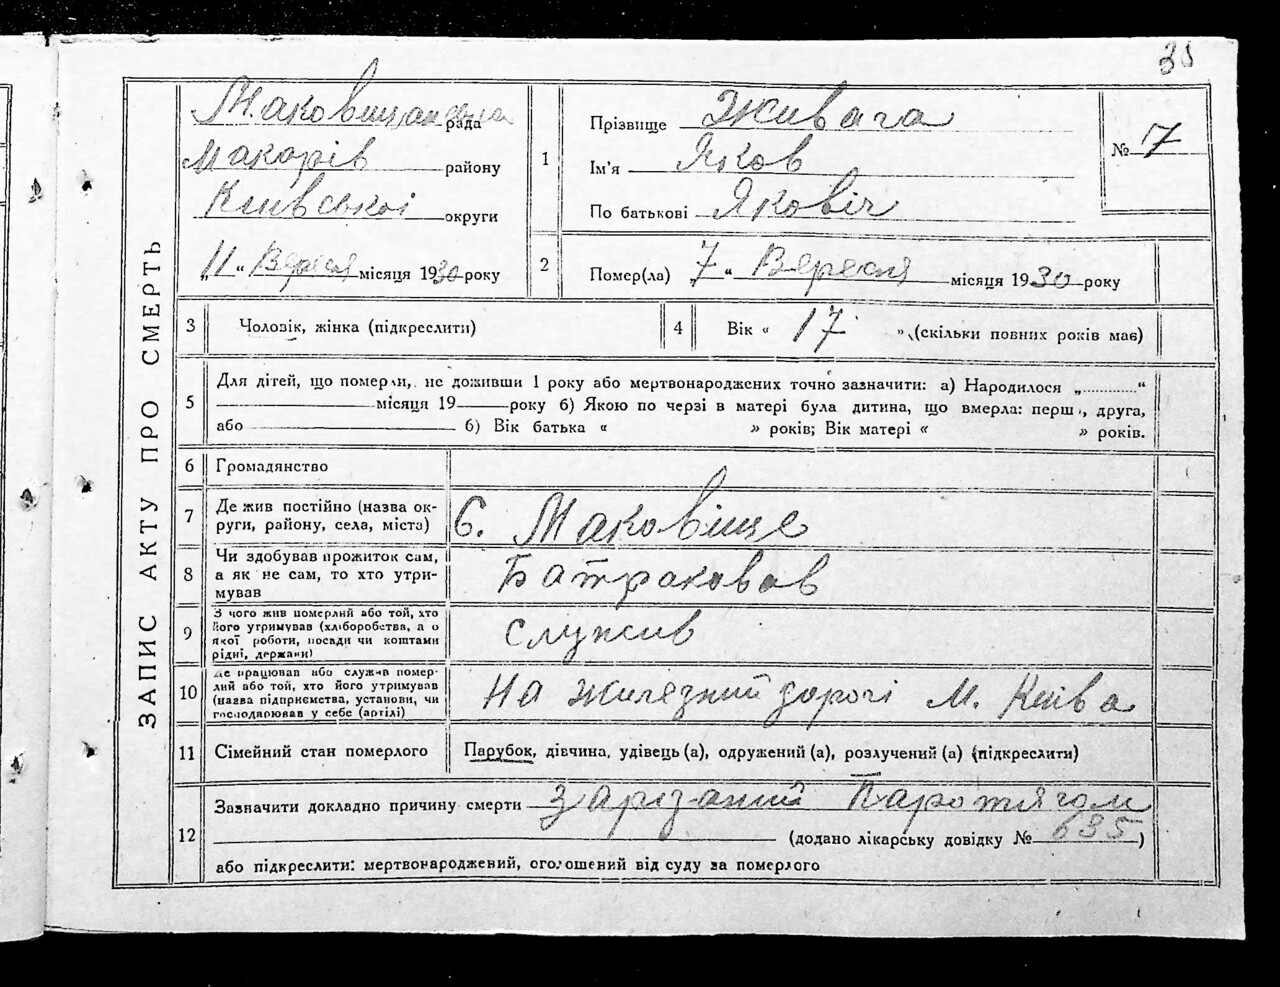 35
ЗАПИС АКТУ ПРО СМЕРТЬ
Маковищанська рада
Макарів району
Київської округи
„11“ Вересня місяця 1930 року
1
Прізвище Живага
Ім'я Яков
По батькові Яковіч
№ 7
2
Помер(ла) 7 „ Вересня місяця 1930 року
3 Чоловік, жінка (підкреслити)
4 Вік « 17 » (скільки повних років мав)
5
Для дітей, що померли, не доживши 1 року або мертвонароджених точно зазначити: а) Народилося „ “
місяця 19 року б) Якою по черзі в матері була дитина, що вмерла: перш , друга,
або б) Вік батька « » років; Вік матері « » років.
6 Громадянство
7
Де жив постійно (назва ок-
руги, району, села, міста)
С. Маковіще
8
Чи здобував прожиток сам,
а як не сам, то хто утри-
мував
Батраковав
9
З чого жив померлий або той, хто
його утримував (хліборобства, а о
якої роботи, посади чи коштами
рідні, держави)
служив
10
Де працював або служив помер-
лий або той, хто його утримував
(назва підприємства, установи, чи
господарював у себе (артілі)
на жилезний дорогі м. Київа
11 Сімейний стан померлого
Парубок, дівчина, удівець (а), одружений (а), розлучений (а) (підкреслити)
12
Зазначити докладно причину смерти зарізаний Паротягом
(додано лікарську довідку № 635)
або підкреслити: мертвонароджений, оголошений від суду за померлого